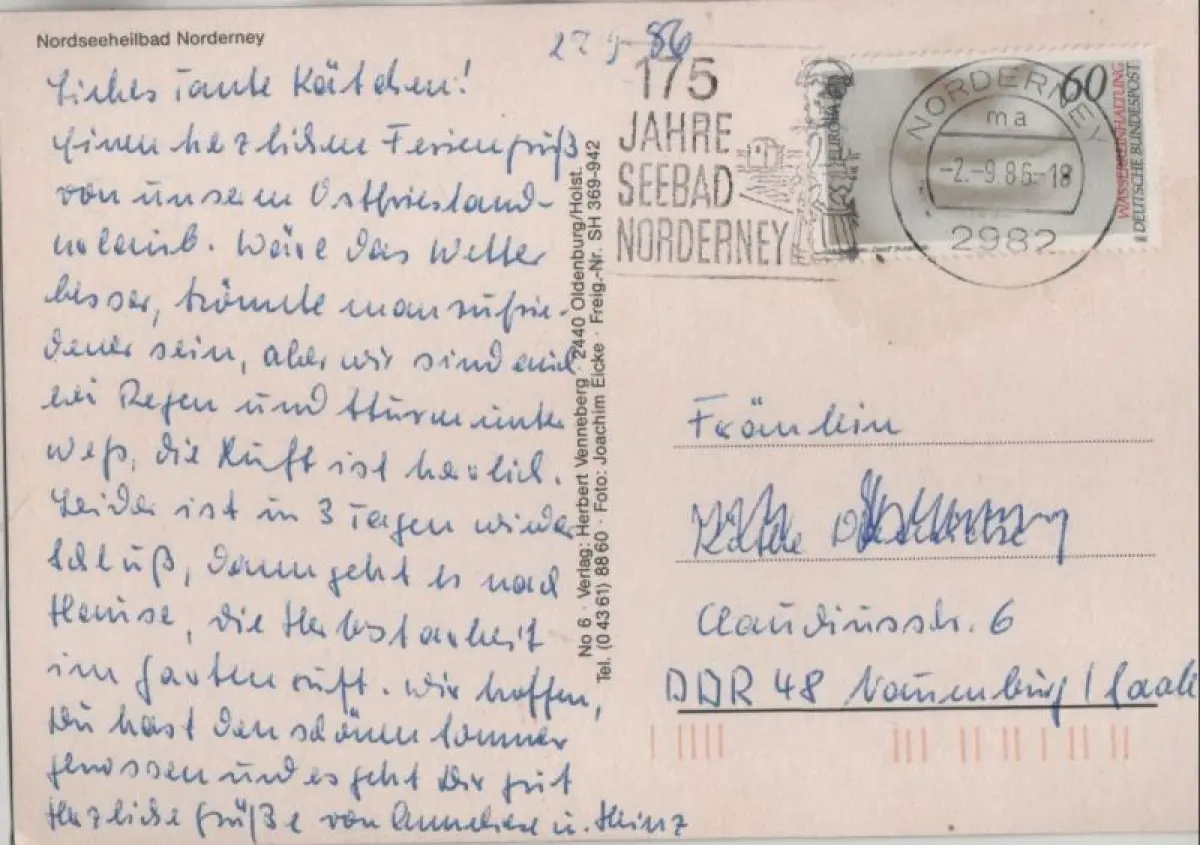 Nordseeheilbad Norderney
2 9 86
Liebes Tante Kätchen!
Einen herzlichen Feriengruß
von unserem Ostfriesland-
urlaub. Wäre das Wetter
besser, könnte man zufrie-
dener sein, aber wir sind auch
bei Regen und Sturm unter
wegs, die Luft ist herrlich.
Leider ist in 3 Tagen wieder
Schluß, dann geht es nach
Hause, die Herbstarbeit
im Garten ruft. Wir hoffen,
Du hast den schönen Sommer
genossen und es geht Dir gut
Herzliche Grüße von Anneliese u. Heinz
No 6 · Verlag: Herbert Venneberg · 2440 Oldenburg/Holst.
Tel. (0 43 61) 88 60 · Foto: Joachim Eicke · Freig.-Nr. SH 369-942
175
JAHRE
SEEBAD
NORDERNEY
EUROPA
60
WASSERREINHALTUNG
DEUTSCHE BUNDESPOST
NORDERNEY
ma
-2.-9.86-18
2982
Fräulein
Claudiusstr. 6
DDR 48 Naumburg / Saale